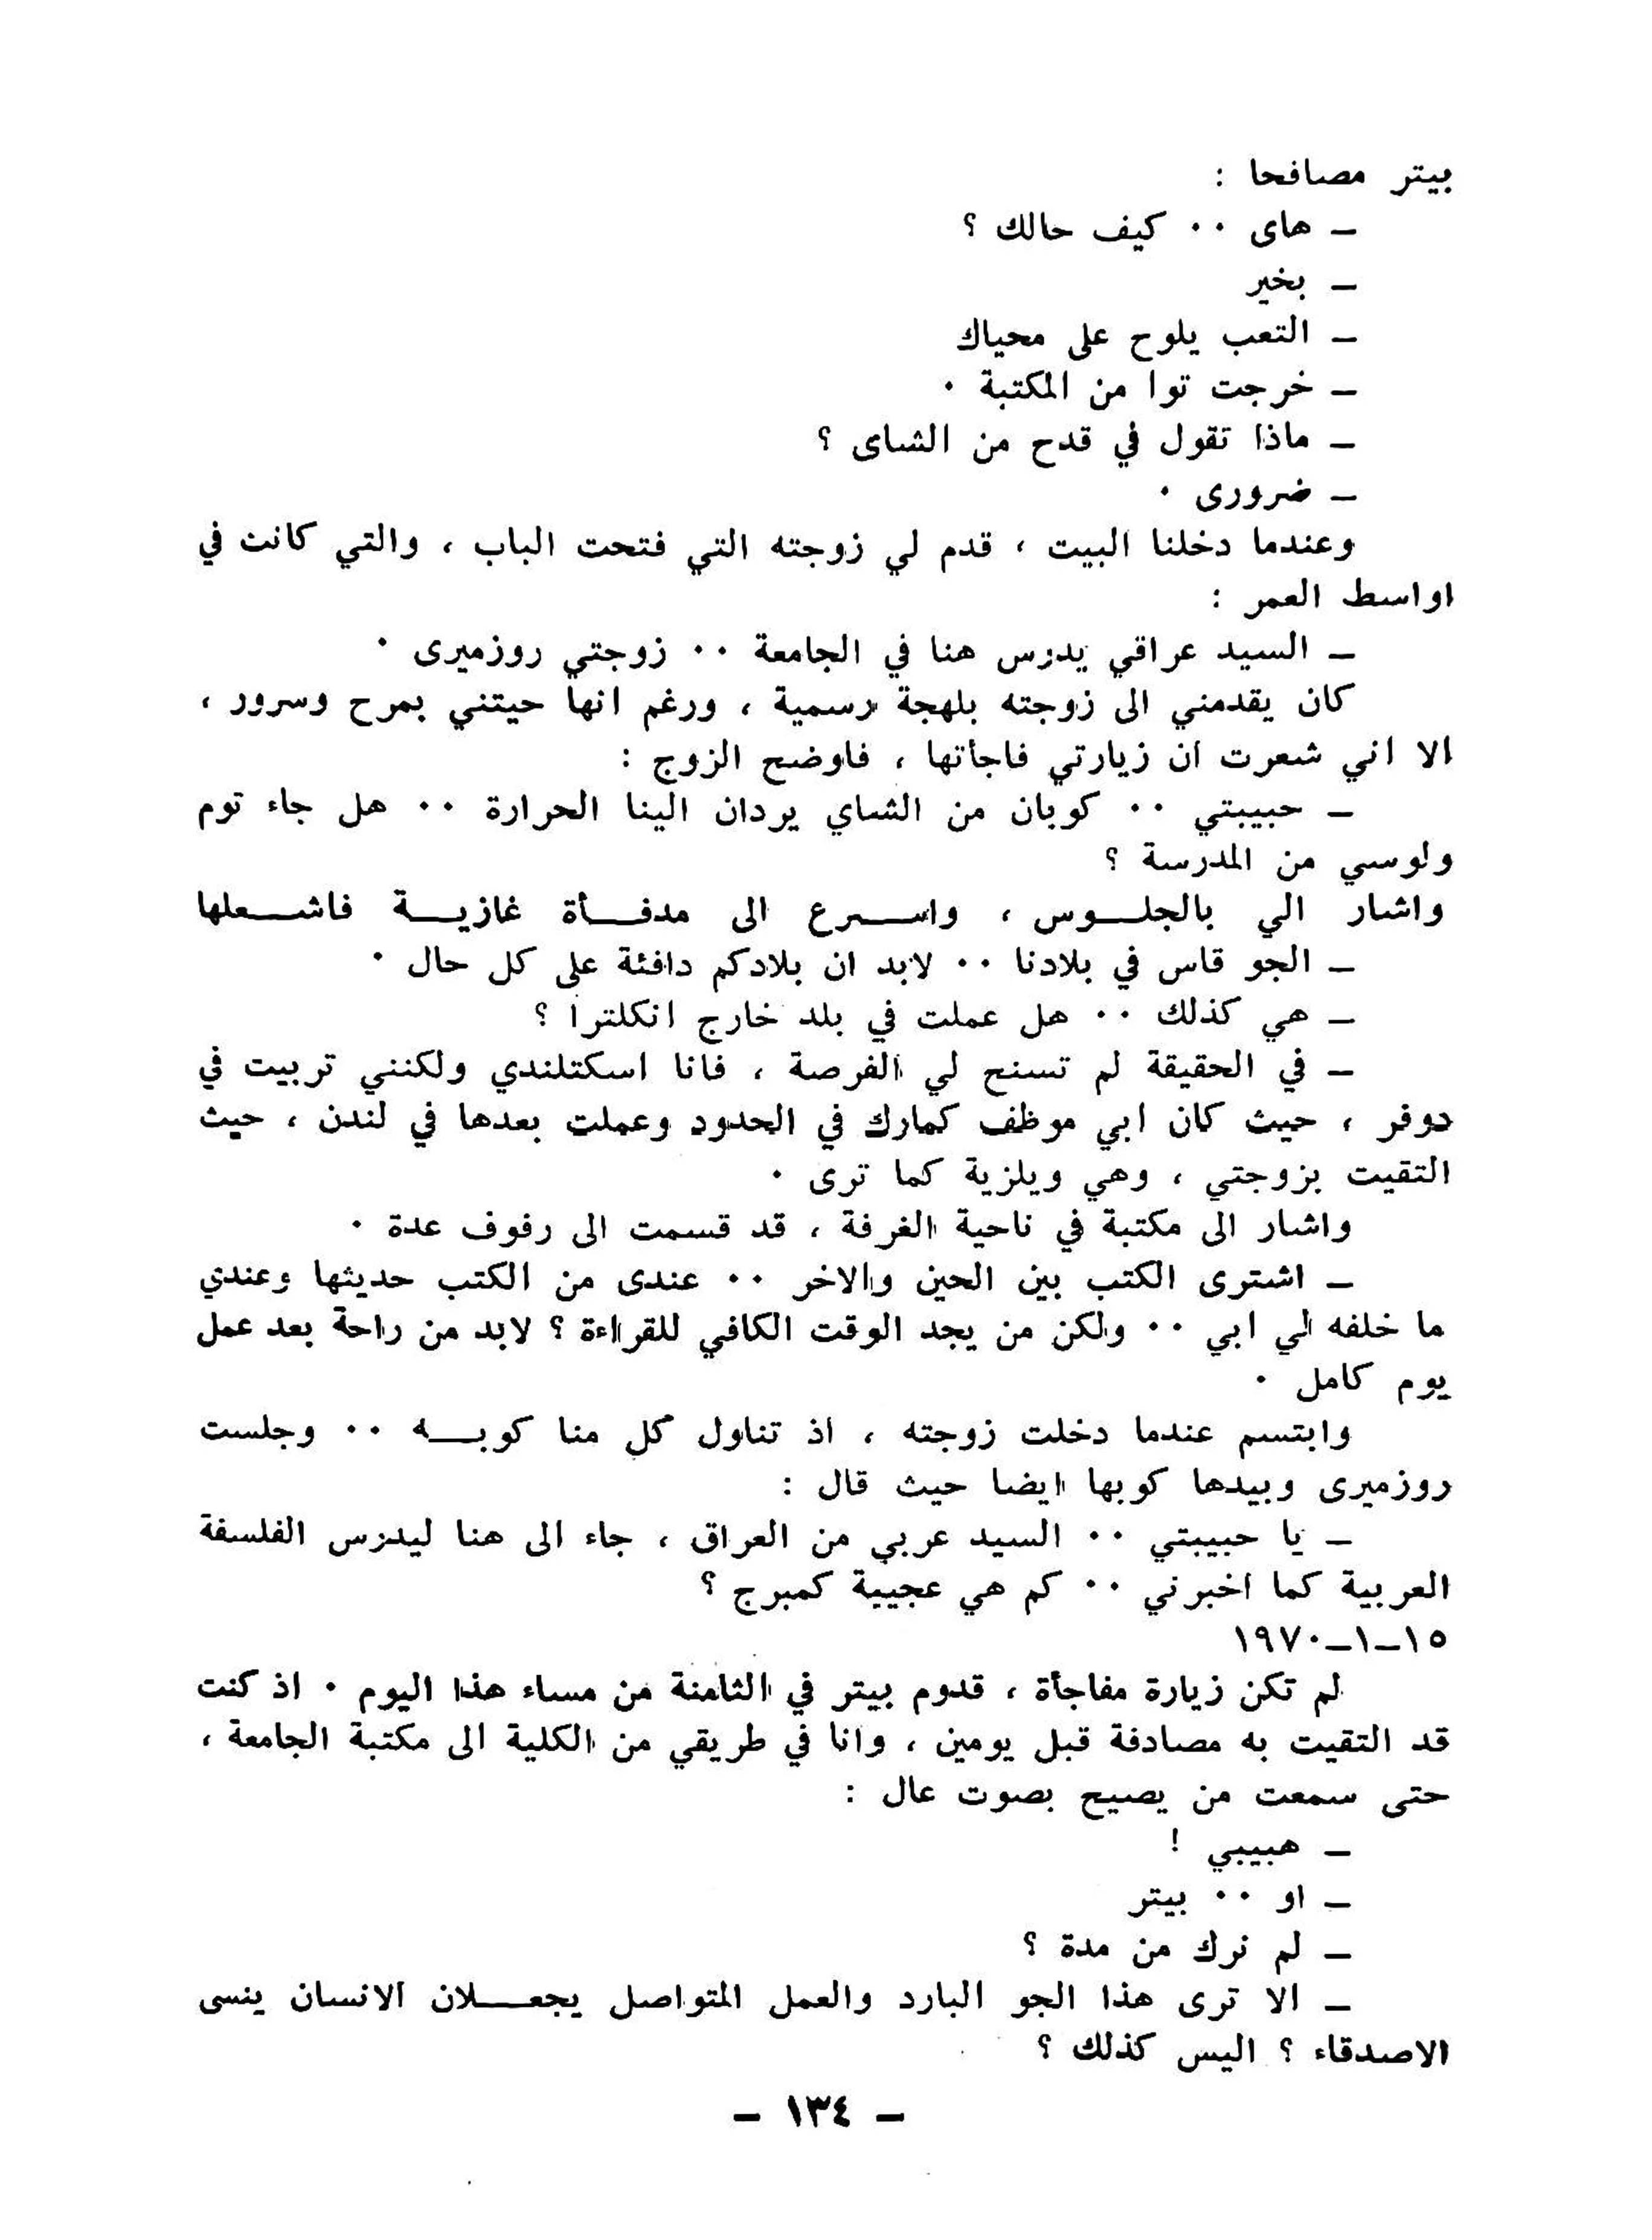 بيتر مصافحا :
ـ هاى ٠٠ كيف حالك ؟
ـ بخير
ـ التعب يلوح على محياك
ـ خرجت توا من المكتبة ٠
ـ ماذا تقول في قدح من الشاى ؟
ـ ضرورى ٠
وعندما دخلنا البيت ، قدم لي زوجته التي فتحت الباب ، والتي كانت في
اواسط العمر :
ـ السيد عراقي يدرس هنا في الجامعة ٠٠ زوجتي روزميرى ٠
كان يقدمني الى زوجته بلهجة رسمية ، ورغم انها حيتني بمرح وسرور ،
الا اني شعرت ان زيارتي فاجأتها ، فاوضح الزوج :
ـ حبيبتي ٠٠ كوبان من الشاي يردان الينا الحرارة ٠٠ هل جاء توم
ولوسي من المدرسة ؟
واشار الي بالجلـــوس ، واســـرع الى مدفـــأة غازيـــة فاشـــعلها
ـ الجو قاس في بلادنا ٠٠ لابد ان بلادكم دافئة على كل حال ٠
ـ هي كذلك ٠٠ هل عملت في بلد خارج انكلترا ؟
ـ في الحقيقة لم تسنح لي الفرصة ، فانا اسكتلندي ولكنني تربيت في
دوفر ، حيث كان ابي موظف كمارك في الحدود وعملت بعدها في لندن ، حيث
التقيت بزوجتي ، وهي ويلزية كما ترى ٠
واشار الى مكتبة في ناحية الغرفة ، قد قسمت الى رفوف عدة ٠
ـ اشترى الكتب بين الحين والاخر ٠٠ عندى من الكتب حديثها وعندي
ما خلفه لي ابي ٠٠ ولكن من يجد الوقت الكافي للقراءة ؟ لابد من راحة بعد عمل
يوم كامل ٠
وابتسم عندما دخلت زوجته ، اذ تناول كل منا كوبـــه ٠٠ وجلست
روزميرى وبيدها كوبها ايضا حيث قال :
ـ يا حبيبتي ٠٠ السيد عربي من العراق ، جاء الى هنا ليدرس الفلسفة
العربية كما اخبرني ٠٠ كم هي عجيبة كمبرج ؟
١٥ـ١ـ١٩٧٠
لم تكن زيارة مفاجأة ، قدوم بيتر في الثامنة من مساء هذا اليوم ٠ اذ كنت
قد التقيت به مصادفة قبل يومين ، وانا في طريقي من الكلية الى مكتبة الجامعة ،
حتى سمعت من يصيح بصوت عال :
ـ هبيبي !
ـ او ٠٠ بيتر
ـ لم نرك من مدة ؟
ـ الا ترى هذا الجو البارد والعمل المتواصل يجعـــلان الانسان ينسى
الاصدقاء ؟ اليس كذلك ؟
ـ ١٣٤ ـ